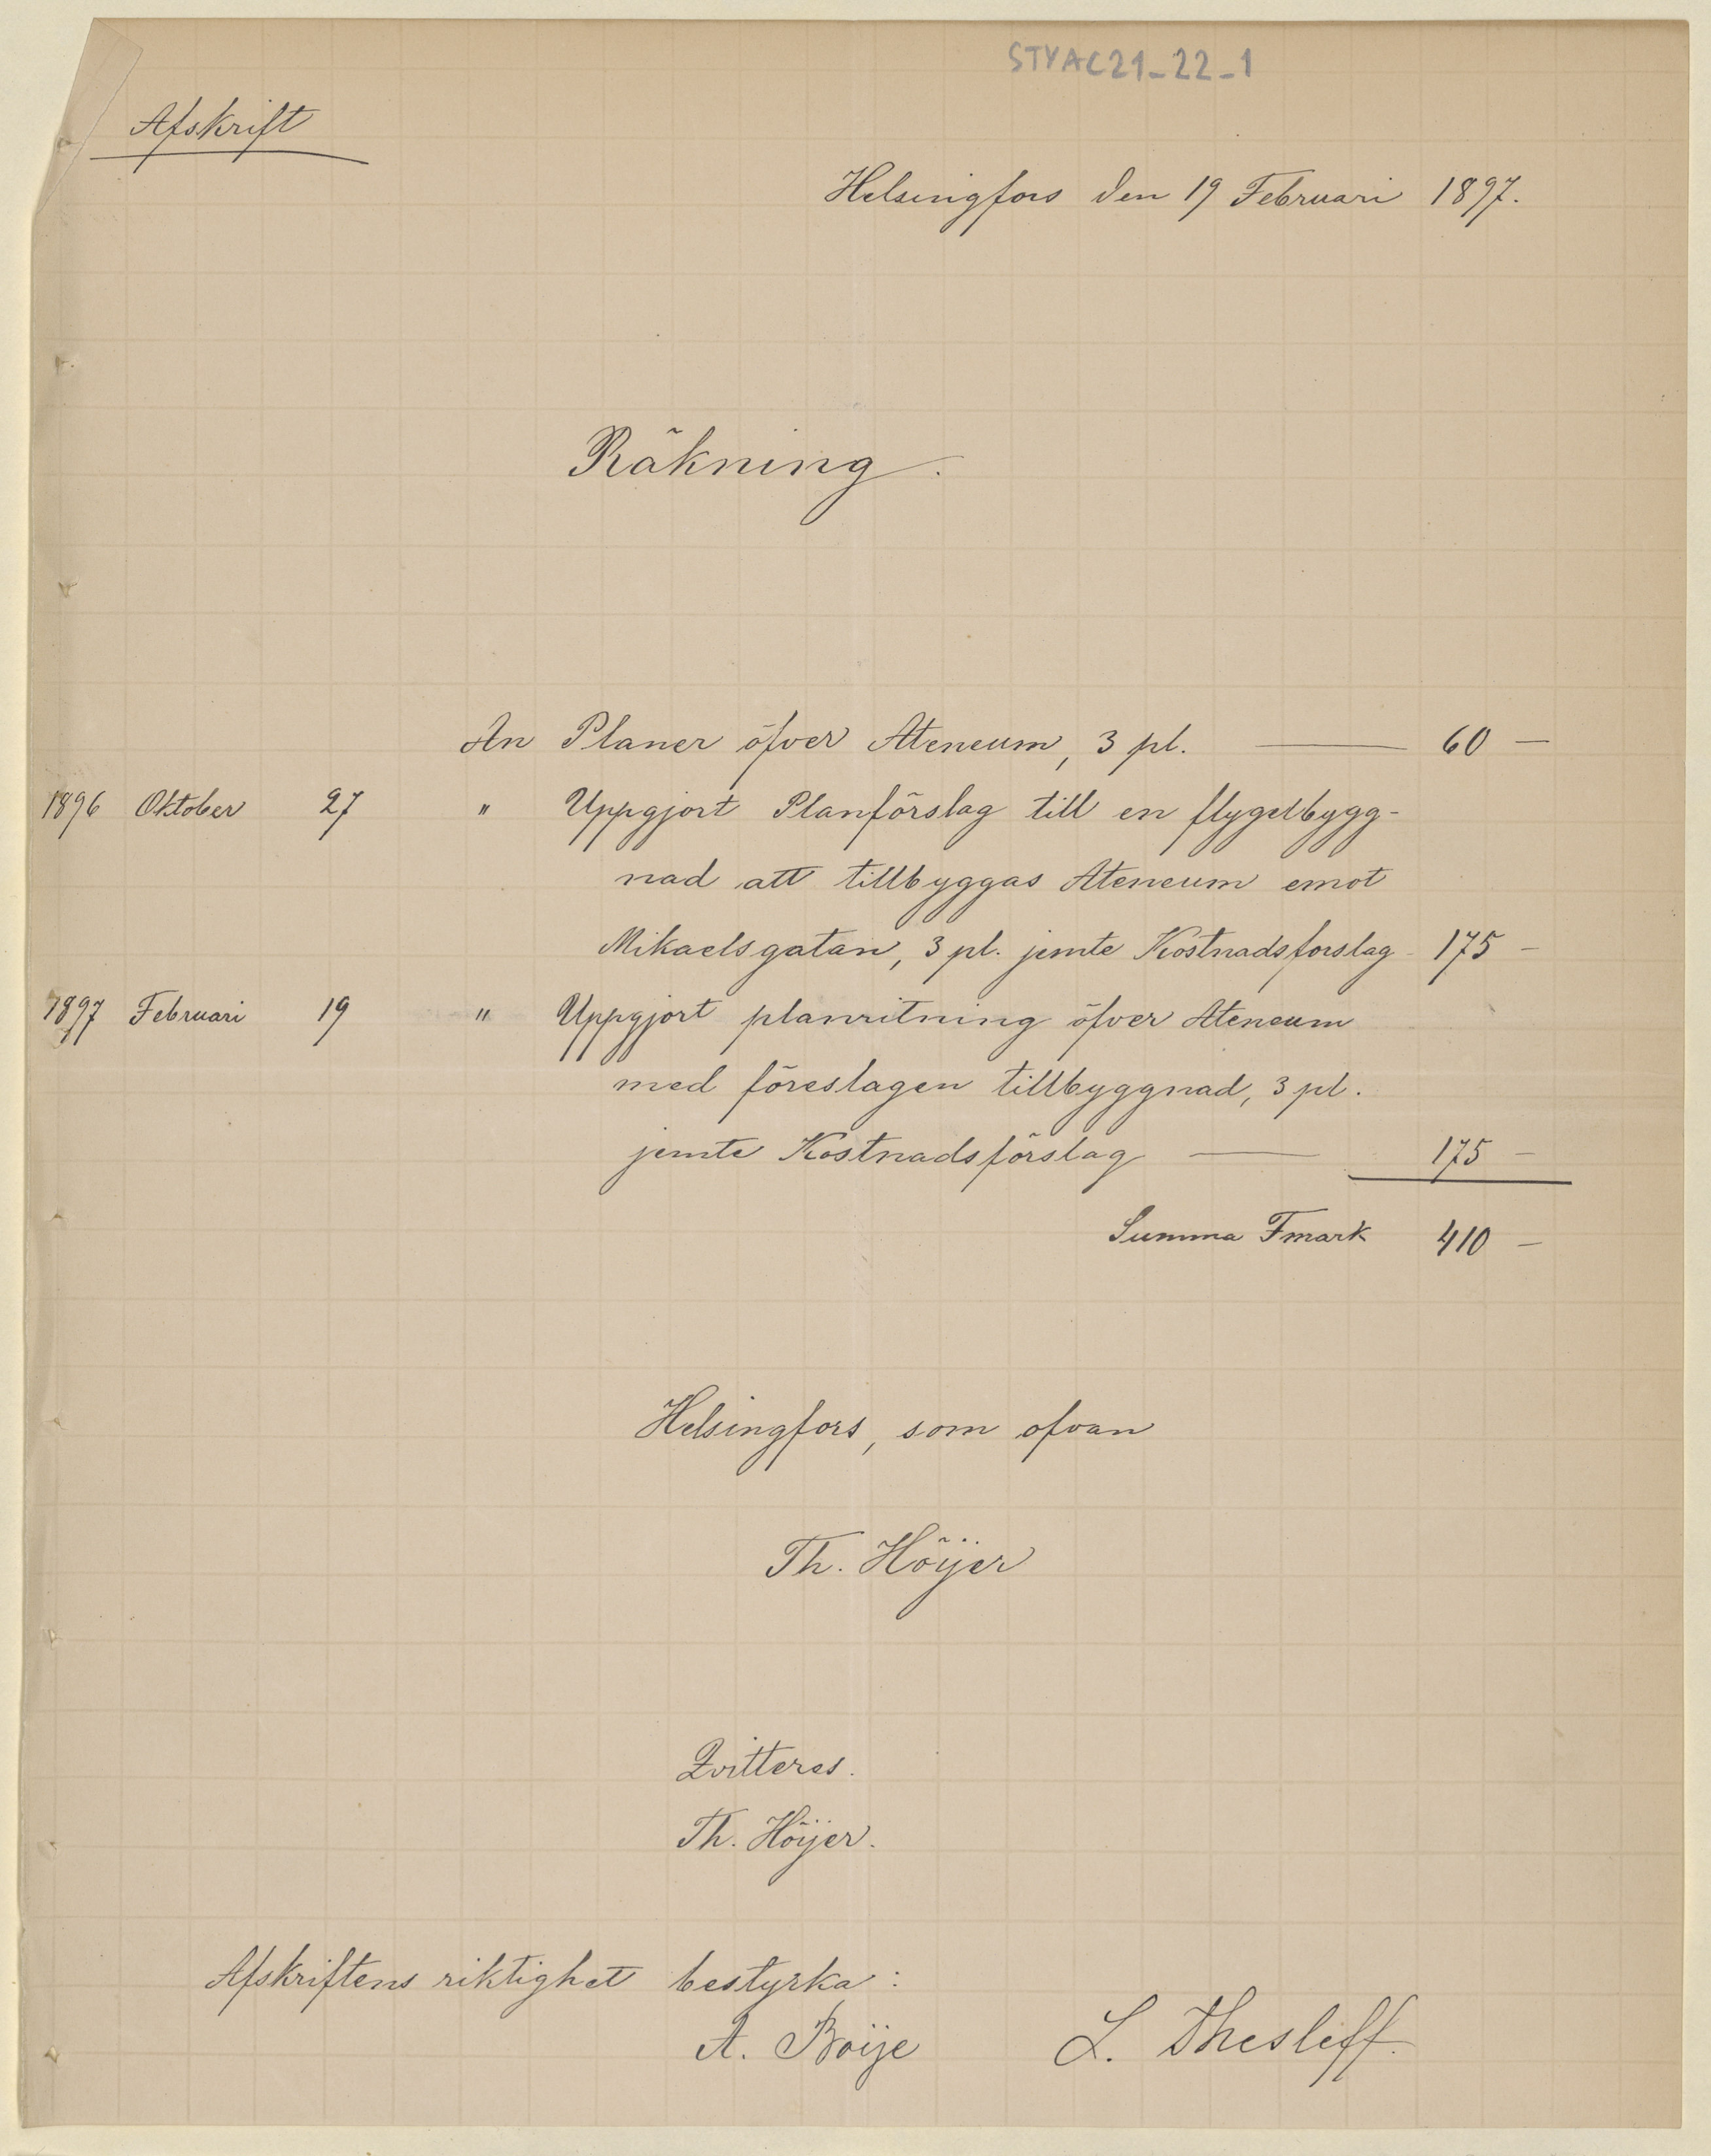 STYAC21_22_1
Afskrift
Helsingfors den 19 Februari 1897.
Räkning.
An Planer öfver Ateneum, 3 pl. —— 60 —
1896 Oktober 27 " Uppgjort Planförslag till en flygelbygg-
nad att tillbyggas Ateneum emot
Mikaelsgatan, 3 pl. jemte Kostnadsforslag - 175 -
1897 Februari 19 " Uppgjort planritning öfver Ateneum
med föreslagen tillbyggnad, 3 pl.
jemte Kostnadsförslag —— 175 -
Summa Fmark 410 -
Helsingfors, som ofvan
Th. Höijer
Qvitteras.
Th. Höijer.
Afskriftens riktighet bestyrka:
A. Boije L. Thesleff.